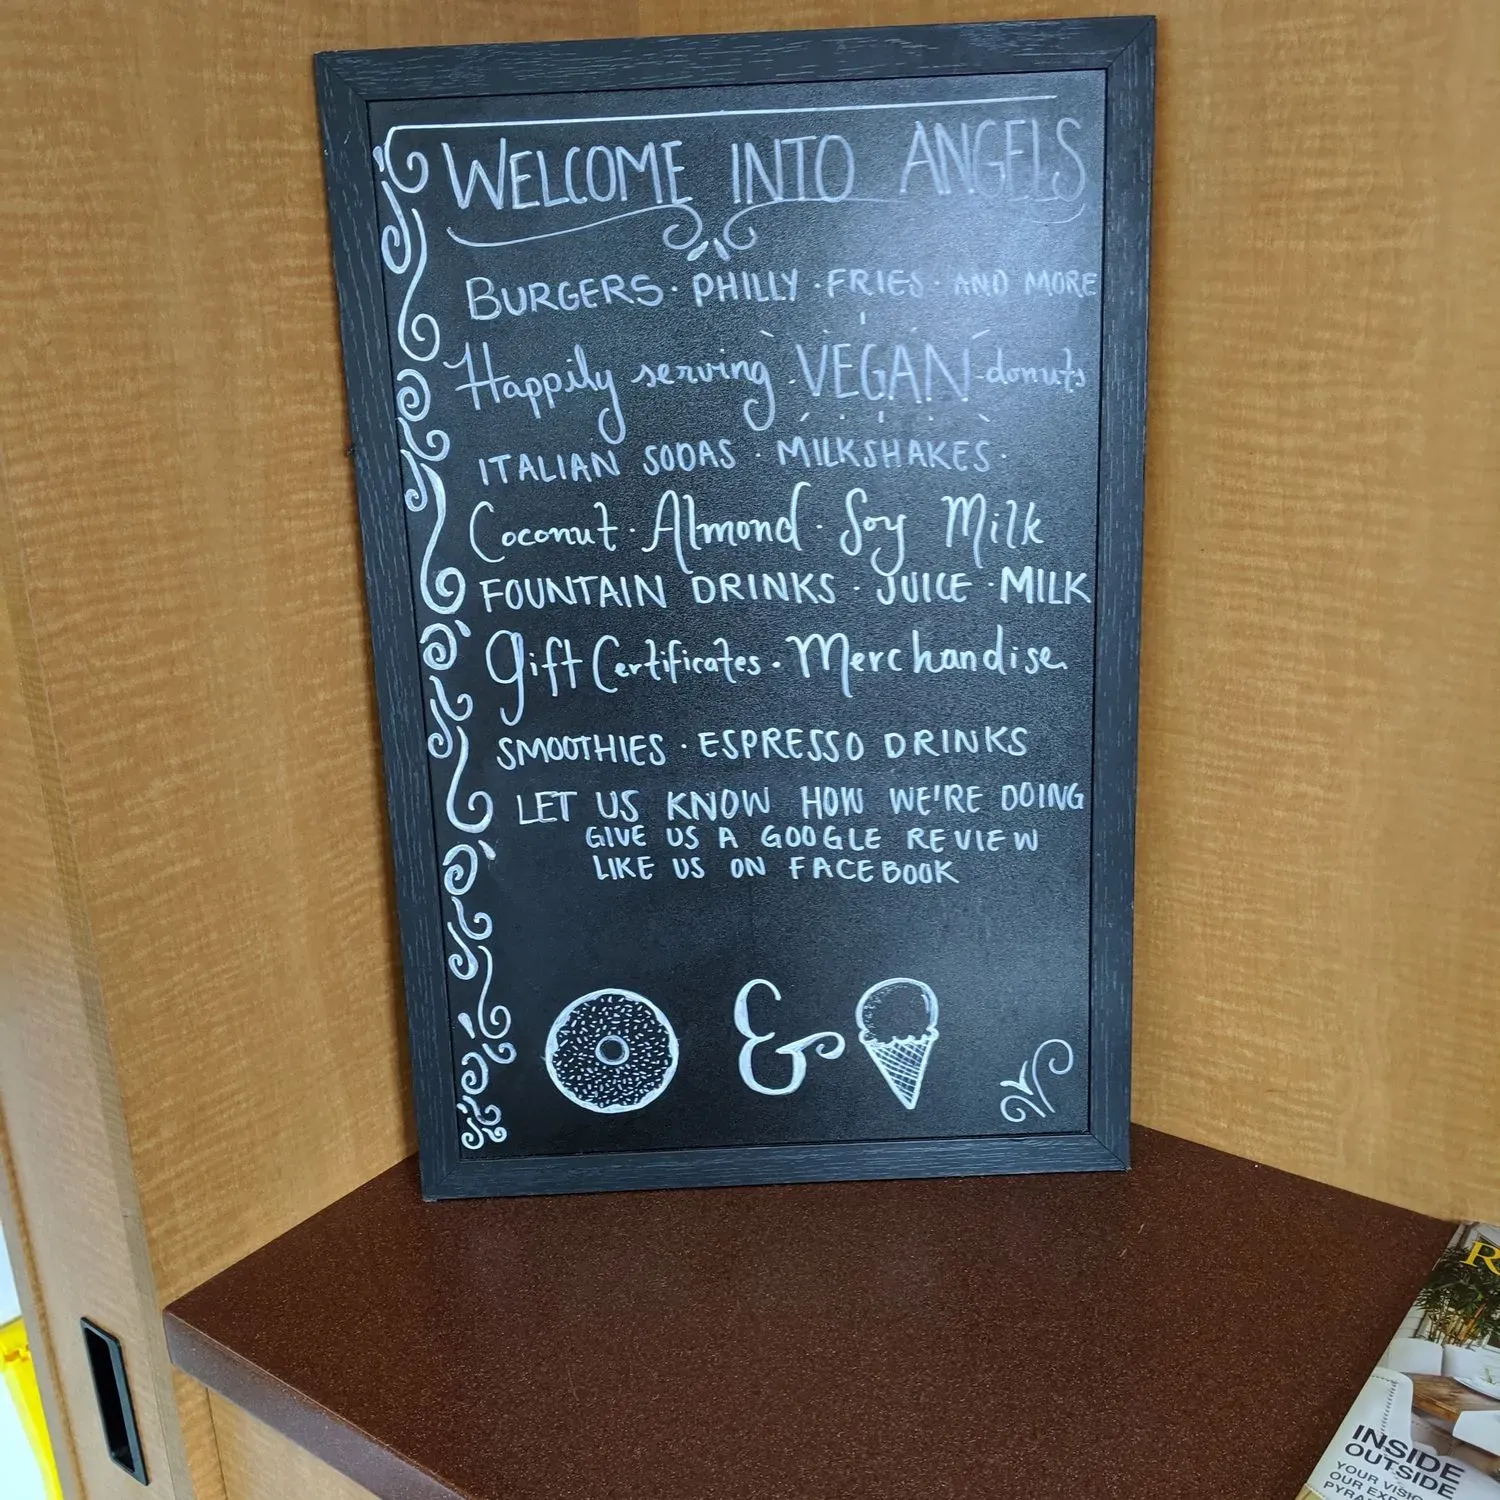 WELCOME INTO ANGELS
BURGERS · PHILLY · FRIES · AND MORE
Happily serving VEGAN donuts
ITALIAN SODAS · MILKSHAKES ·
Coconut · Almond · Soy Milk
FOUNTAIN DRINKS · JUICE · MILK
Gift Certificates · Merchandise
SMOOTHIES · ESPRESSO DRINKS
LET US KNOW HOW WE'RE DOING
GIVE US A GOOGLE REVIEW
LIKE US ON FACEBOOK
&
INSIDE
OUTSIDE